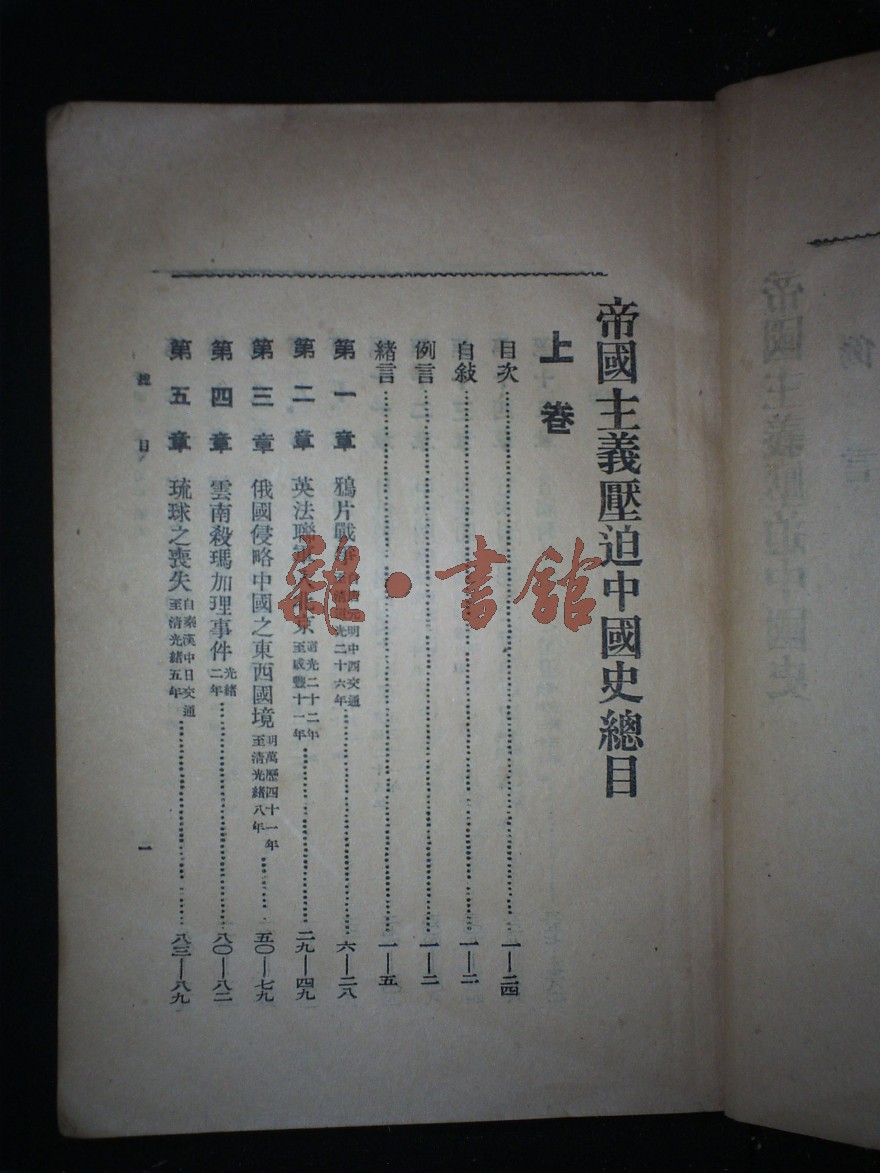 帝國主義壓迫中國史總目
上卷
目次 一—二四
自敍 一—二
例言 一—二
緒言 一—五
第一章 鴉片戰 明中西交通 光二十六年 六—二八
第二章 英法聯 京 道光二十二年至咸豐十一年 二九—四九
第三章 俄國侵略中國之東西國境 明萬曆四十一年至清光緒八年 五〇—七九
第四章 雲南殺瑪加理事件 光緒二年 八〇—八二
第五章 琉球之喪失 自秦漢中日交通至清光緒五年 八三—八九
總目
一
雜·書館
例言
帝國主義壓迫中國史